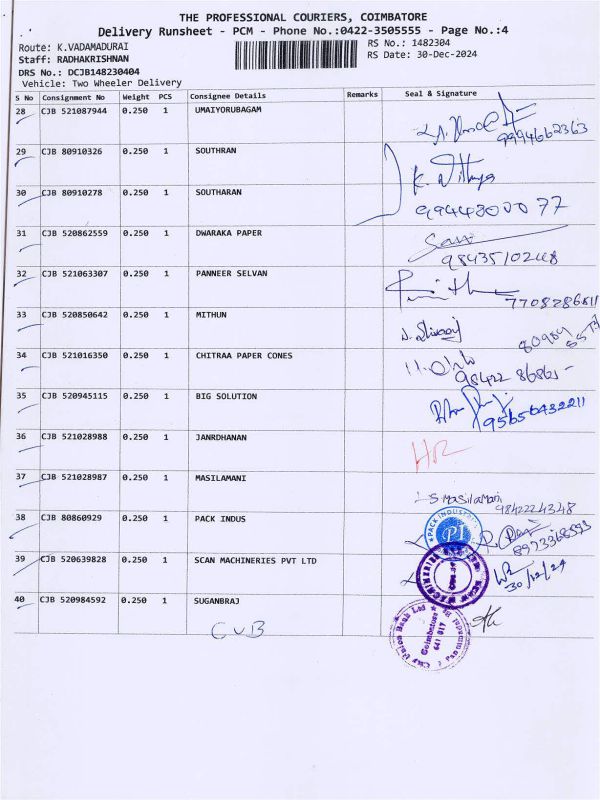 THE PROFESSIONAL COURIERS, COIMBATORE
Delivery Runsheet - PCM - Phone No.:0422-3505555 - Page No.:4
Route: K.VADAMADURAI
RS No.: 1482304
Staff: RADHAKRISHNAN
RS Date: 30-Dec-2024
DRS No.: DCJB148230404
Vehicle: Two Wheeler Delivery
S No Consignment No Weight PCS Consignee Details Remarks Seal & Signature
28 CJB 521087944 0.250 1 UMAIYORUBAGAM
9994662363
29 CJB 80910326 0.250 1 SOUTHRAN
K. Nithya
30 CJB 80910278 0.250 1 SOUTHARAN
9944300077
31 CJB 520862559 0.250 1 DWARAKA PAPER
9843510248
32 CJB 521063307 0.250 1 PANNEER SELVAN
7708286811
33 CJB 520850642 0.250 1 MITHUN
34 CJB 521016350 0.250 1 CHITRAA PAPER CONES
98422 86865
35 CJB 520945115 0.250 1 BIG SOLUTION
95650432211
36 CJB 521028988 0.250 1 JANRDHANAN
37 CJB 521028987 0.250 1 MASILAMANI
S. Masilamani
9842224348
38 CJB 80860929 0.250 1 PACK INDUS
PACK INDUSTRIES
PI
8923368593
39 CJB 520639828 0.250 1 SCAN MACHINERIES PVT LTD
30/12/24
40 CJB 520984592 0.250 1 SUGANBRAJ
CUB
City Union Bank Ltd
Coimbatore
641 017